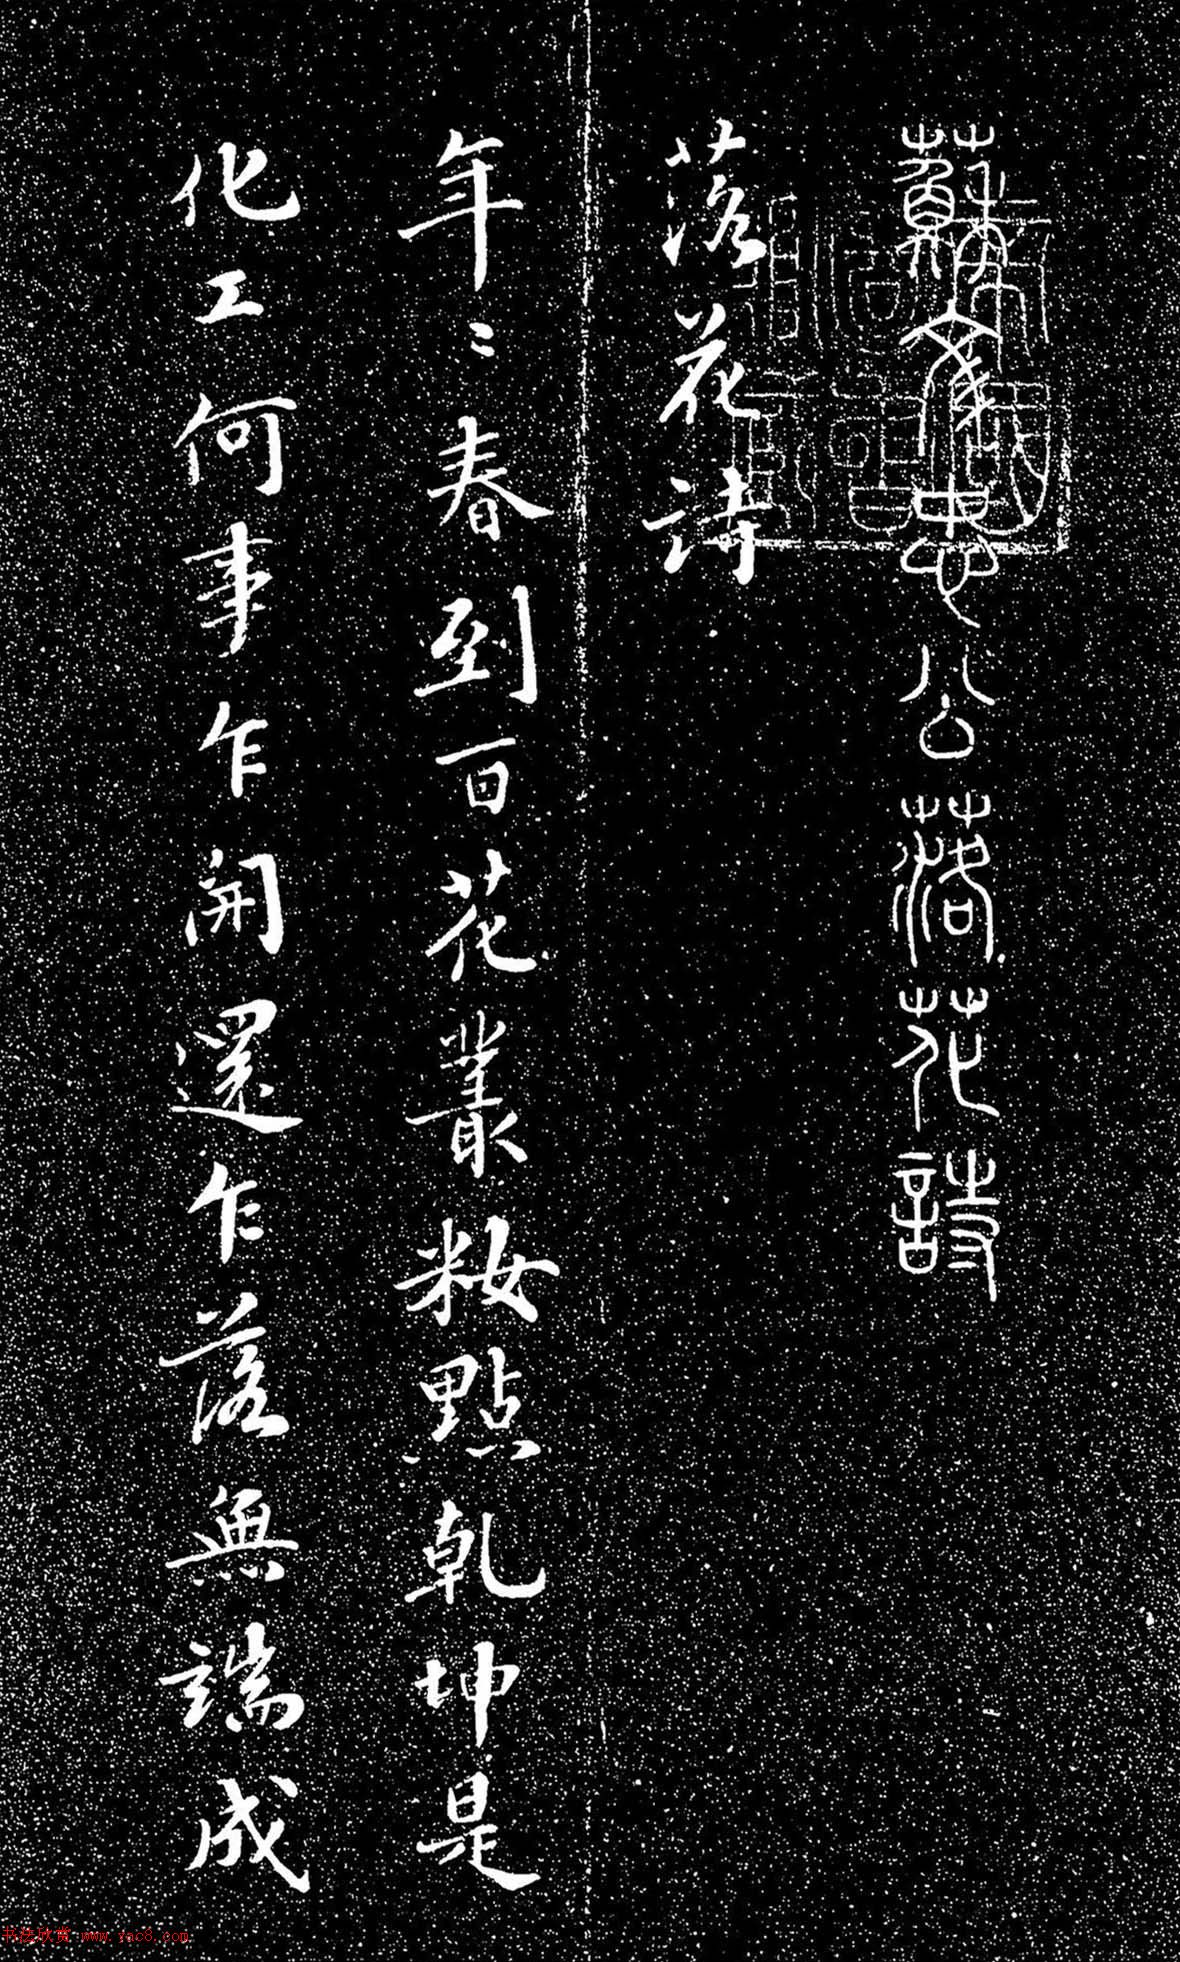 蘇文忠公落花詩
落花詩
年〻春到百花叢粧點乾坤是
化工何事乍開還乍落無端成
书法欣赏 www.yac8.com